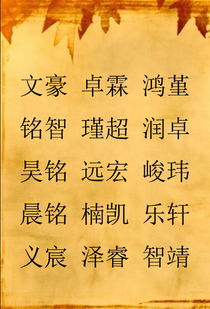 文豪 卓霖 鸿堇
铭智 瑾超 润卓
昊铭 远宏 峻玮
晨铭 楠凯 乐轩
义宸 泽睿 智靖